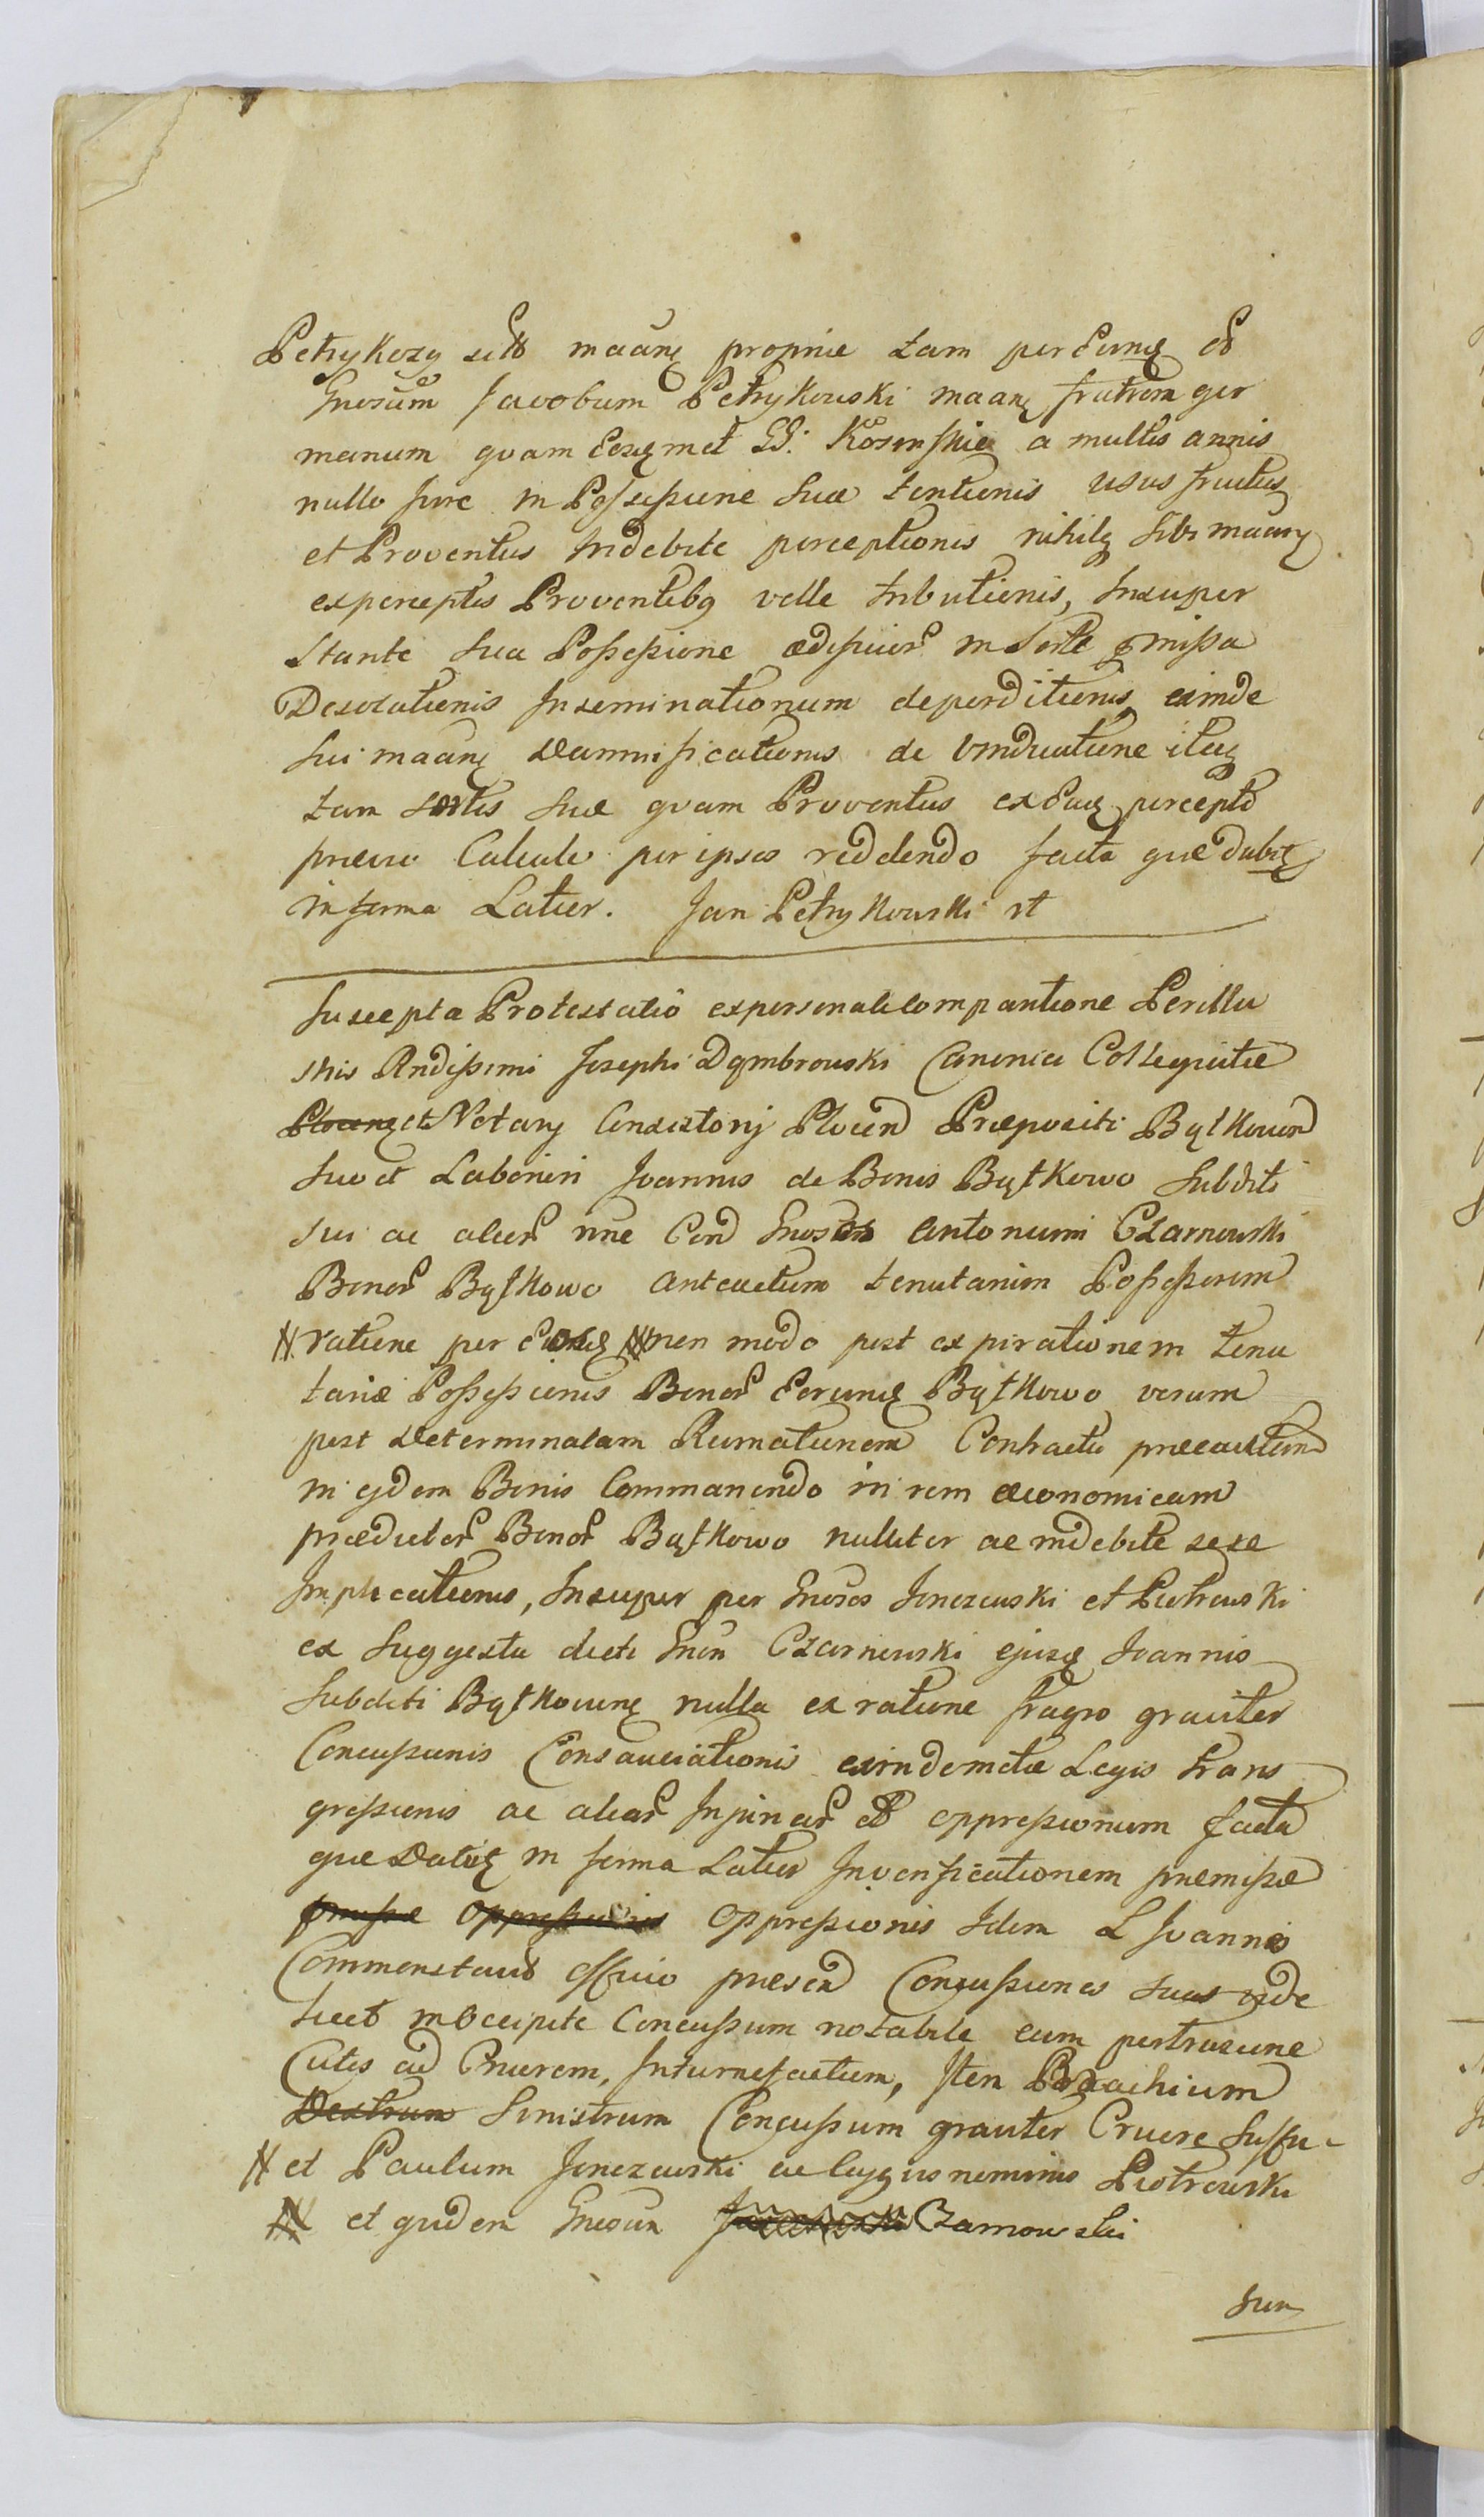 Petrykozy sitt maanq proprie tam per Eumq et
Gnosum Jacobum Petrykowski maanq fratrem ger
manum quam Eosqmet GG: Kosinskie a multis annis
nullo jure in Possessione sua tentionis usus fructus
et Proventus Indebite perceptionis nihilq sibi maanq
ex perceptis Proventibq velle tributionis, Insuper
stante sua Possessione ædificior in Sorte pmissa
Desolationis Inseminationum deperditionis exinde
sui maanq Damnificationis de Vindicatione itaq
tam Sortis suæ quam Proventus ex Eaq percepti
prævio Calculo per ipsos reddendo facta quæ dabit
in forma Latior. Jan Petrykowski st
Suscepta Protestatio ex personali comparitione Perillu
stris Rndissimi Josephi Dąmbrowski Canonici Collegiatæ
et Notary Consistorij Plocen Præpositi Bąłkowen
suo et Laboriosi Joannis de Bonis Bąłkowo subditi
sui ac alior nne Con Gnosos Antonium Czarnowski
Bonor Bąłkowo anteactum tenutarium Possessorem
# ratione per Eosq # non modo post expirationem tenu
tariæ Possessionis Bonor Eorumq Bąłkowo verum
post determinatam Rumationem Contractu præcautum
in ejdem Bonis Commanendo in rem œconomicam
prædictor Bonor Bąłkowo nulliter ac indebite sese
Implicationis, Insuper per Gnosos Jonczewski et Piotrowski
ex suggestu dicti Gnosi Czarnowski ejusq Joannis
subditi Bąłkowenq nulla ex ratione fragro graviter
Concussionis Consauciationis exindemetie Legis trans
gressionis ac aliar Injuriar et oppressionum facta
quæ Datq in forma Latior In verificationem præmissæ
Oppressionis Idem L Joannes
Commonstravit officio præsen Concussiones suas vide
licet in Occipite Concussum notabile cum pertrusione
Cutis ad Cruorem, Inturnefactum, Item Brachium
Sinistrum Concussum graviter Cruore suffu-
# et Paulum Jonczewski ac cujqus nominis Piotrowski
# et quidem Gnosum Czarnowski
sum